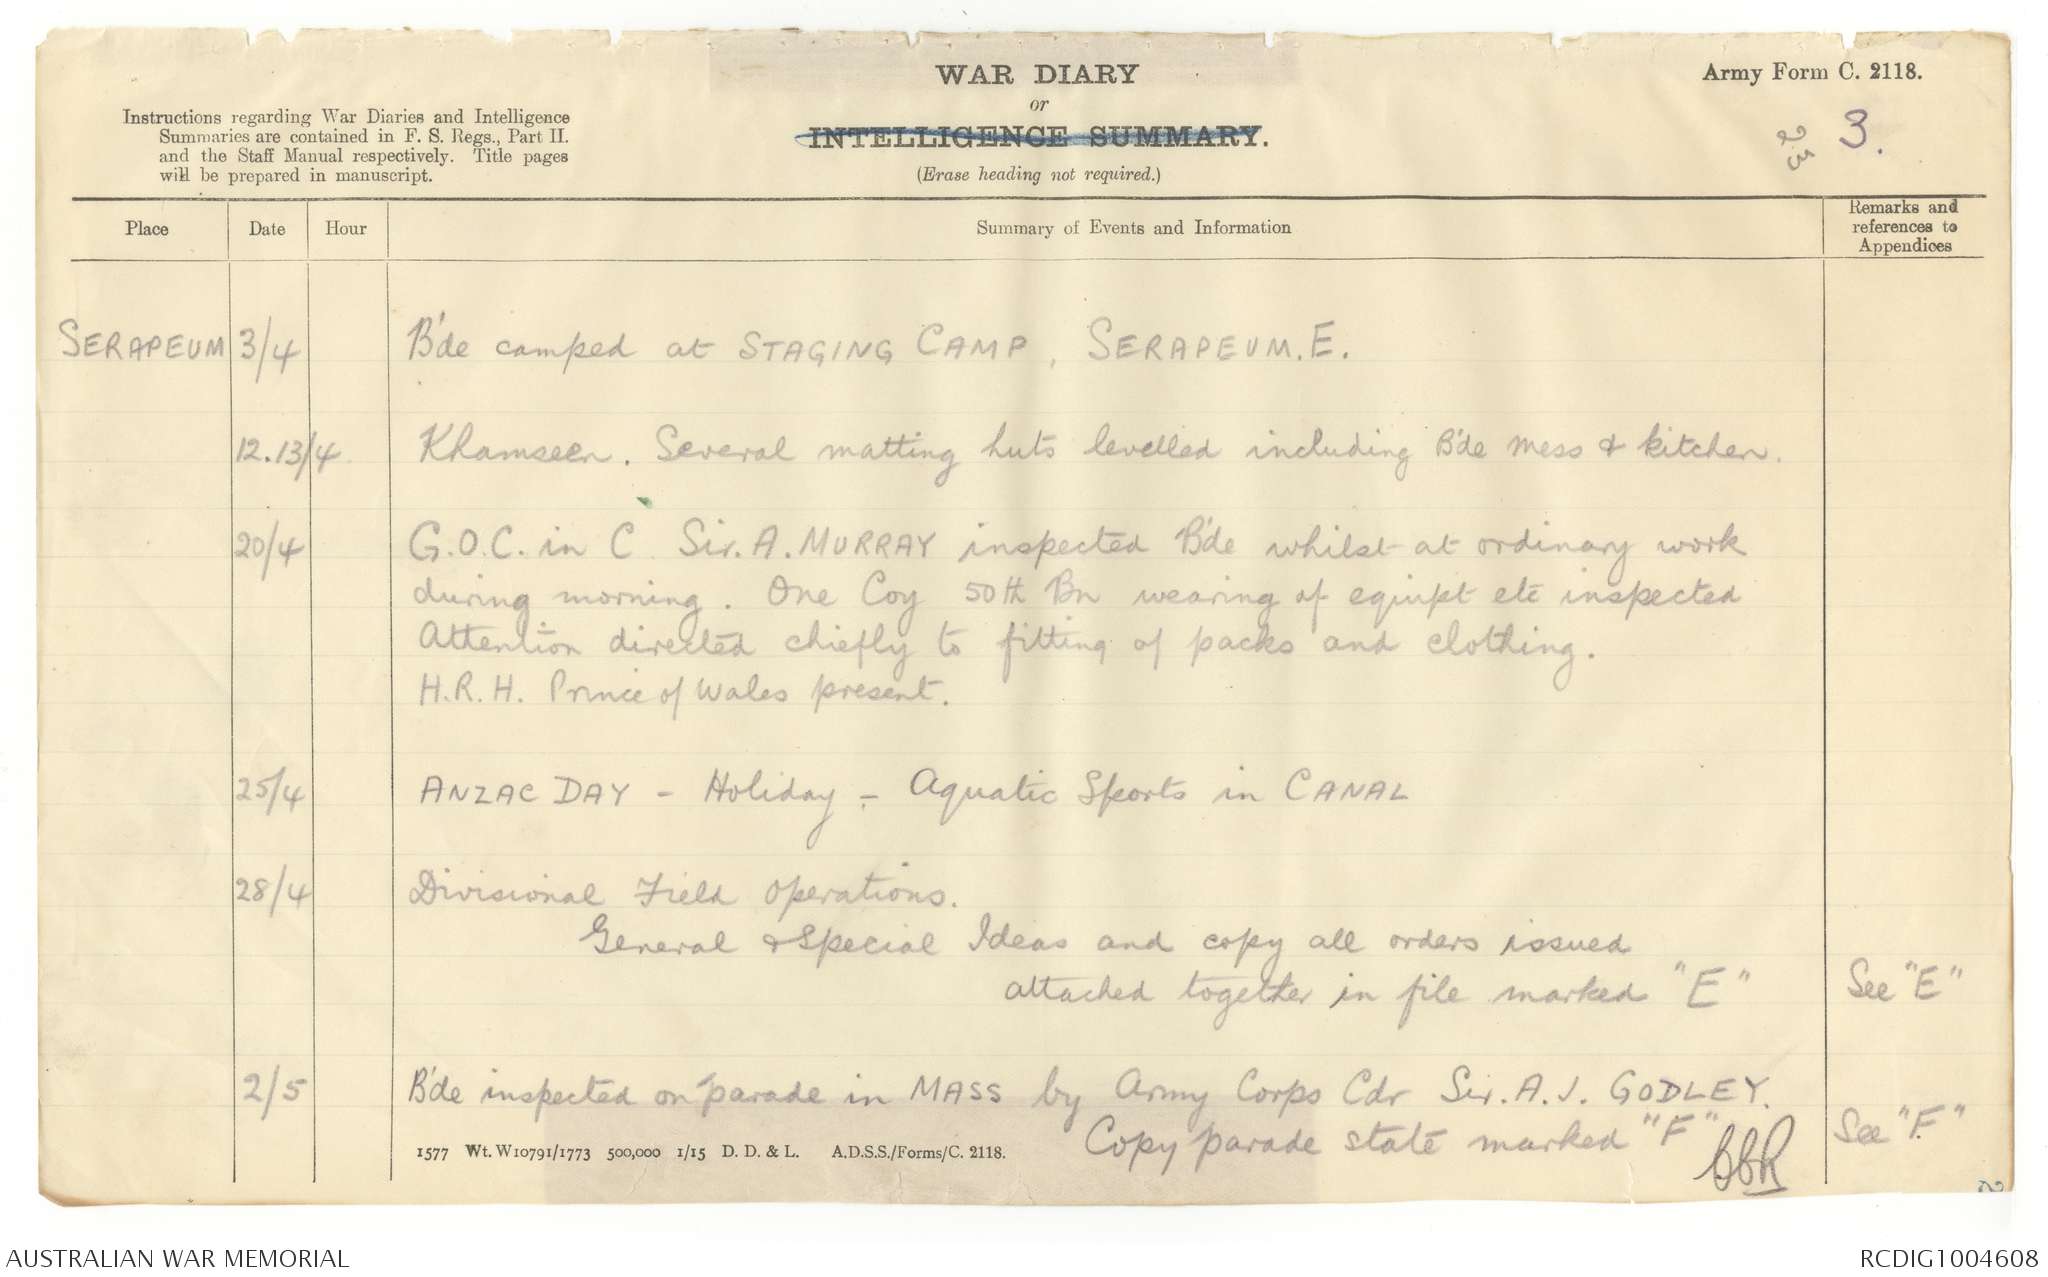 WAR DIARY
or
INTELLIGENCE SUMMARY.
(Erase heading not required.)
Army Form C. 2118.
3.
Instructions regarding War Diaries and Intelligence
Summaries are contained in F. S. Regs., Part II.
and the Staff Manual respectively. Title pages
will be prepared in manuscript.
Place Date Hour Summary of Events and Information Remarks and
references to
Appendices
SERAPEUM 3/4 B'de camped at STAGING CAMP, SERAPEUM. E.
12.13/4 Khamseen. Several matting huts levelled including B'de mess & kitchen.
20/4 G.O.C. in C Sir. A. MURRAY inspected B'de whilst at ordinary work
during morning. One Coy 50th Bn wearing of equipt etc inspected
Attention directed chiefly to fitting of packs and clothing.
H.R.H. Prince of Wales present.
25/4 ANZAC DAY - Holiday - Aquatic Sports in CANAL
28/4 Divisional Field Operations.
General & Special Ideas and copy all orders issued
attached together in file marked "E" See "E"
2/5 B'de inspected on parade in MASS by Army Corps Cdr Sir. A. J. GODLEY.
Copy parade state marked "F" See "F"
1577 Wt. W10791/1773 500,000 1/15 D. D. & L. A.D.S.S./Forms/C. 2118.
AUSTRALIAN WAR MEMORIAL RCDIG1004608